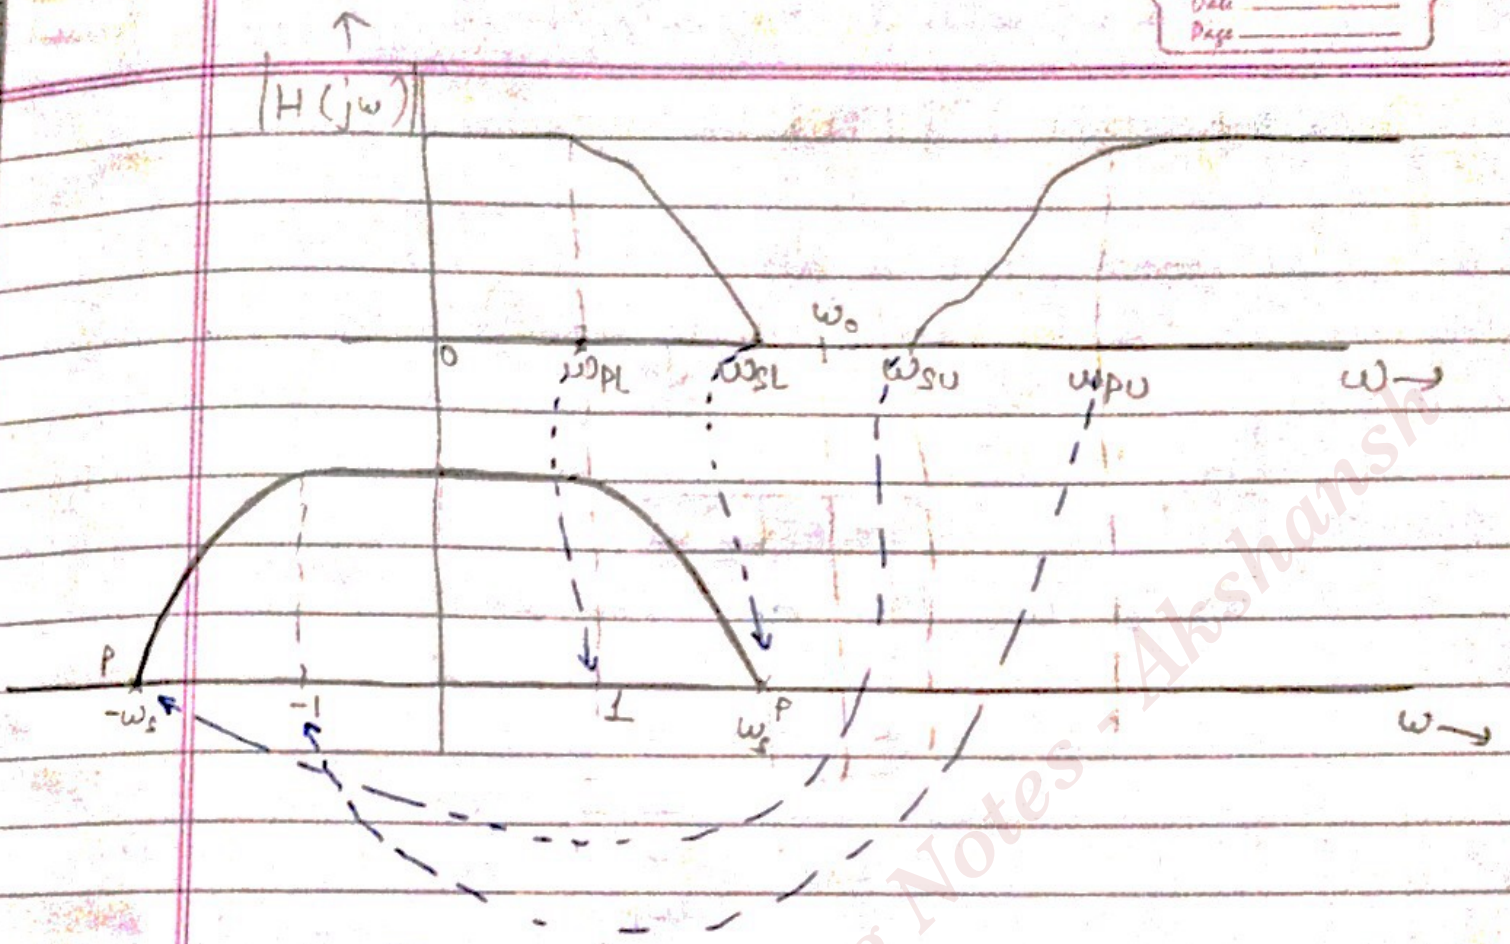 Date
Page
|H(jω)|
ω₀
0 ω_PL ω_SL ω_SU ω_PU ω→
P P
-ω_s -1 1 ω_s ω→
Notes - Akshansh